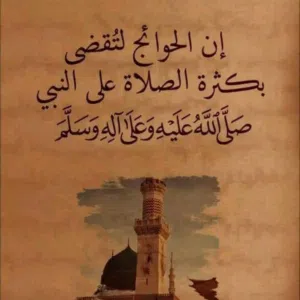 إن الحوائج لتُقضى
بكثرة الصلاة على النبي
صَلَّى اللَّهُ عَلَيْهِ وَعَلَى آلِهِ وَسَلَّمَ